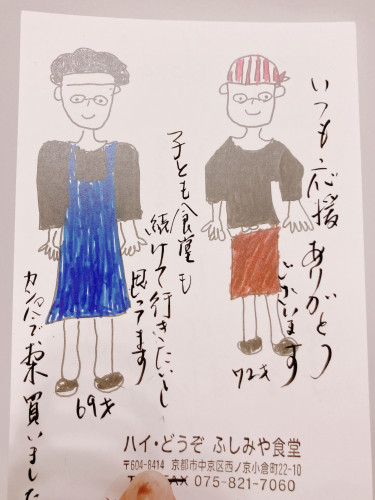 いつも応援ありがとう
ございます
子ども食堂も
続けて行きたいと
思ってます
カンパでお米買いました
72才
69才
ハイ・どうぞ ふしみや食堂
〒604-8414 京都市中京区西ノ京小倉町22-10
FAX 075-821-7060